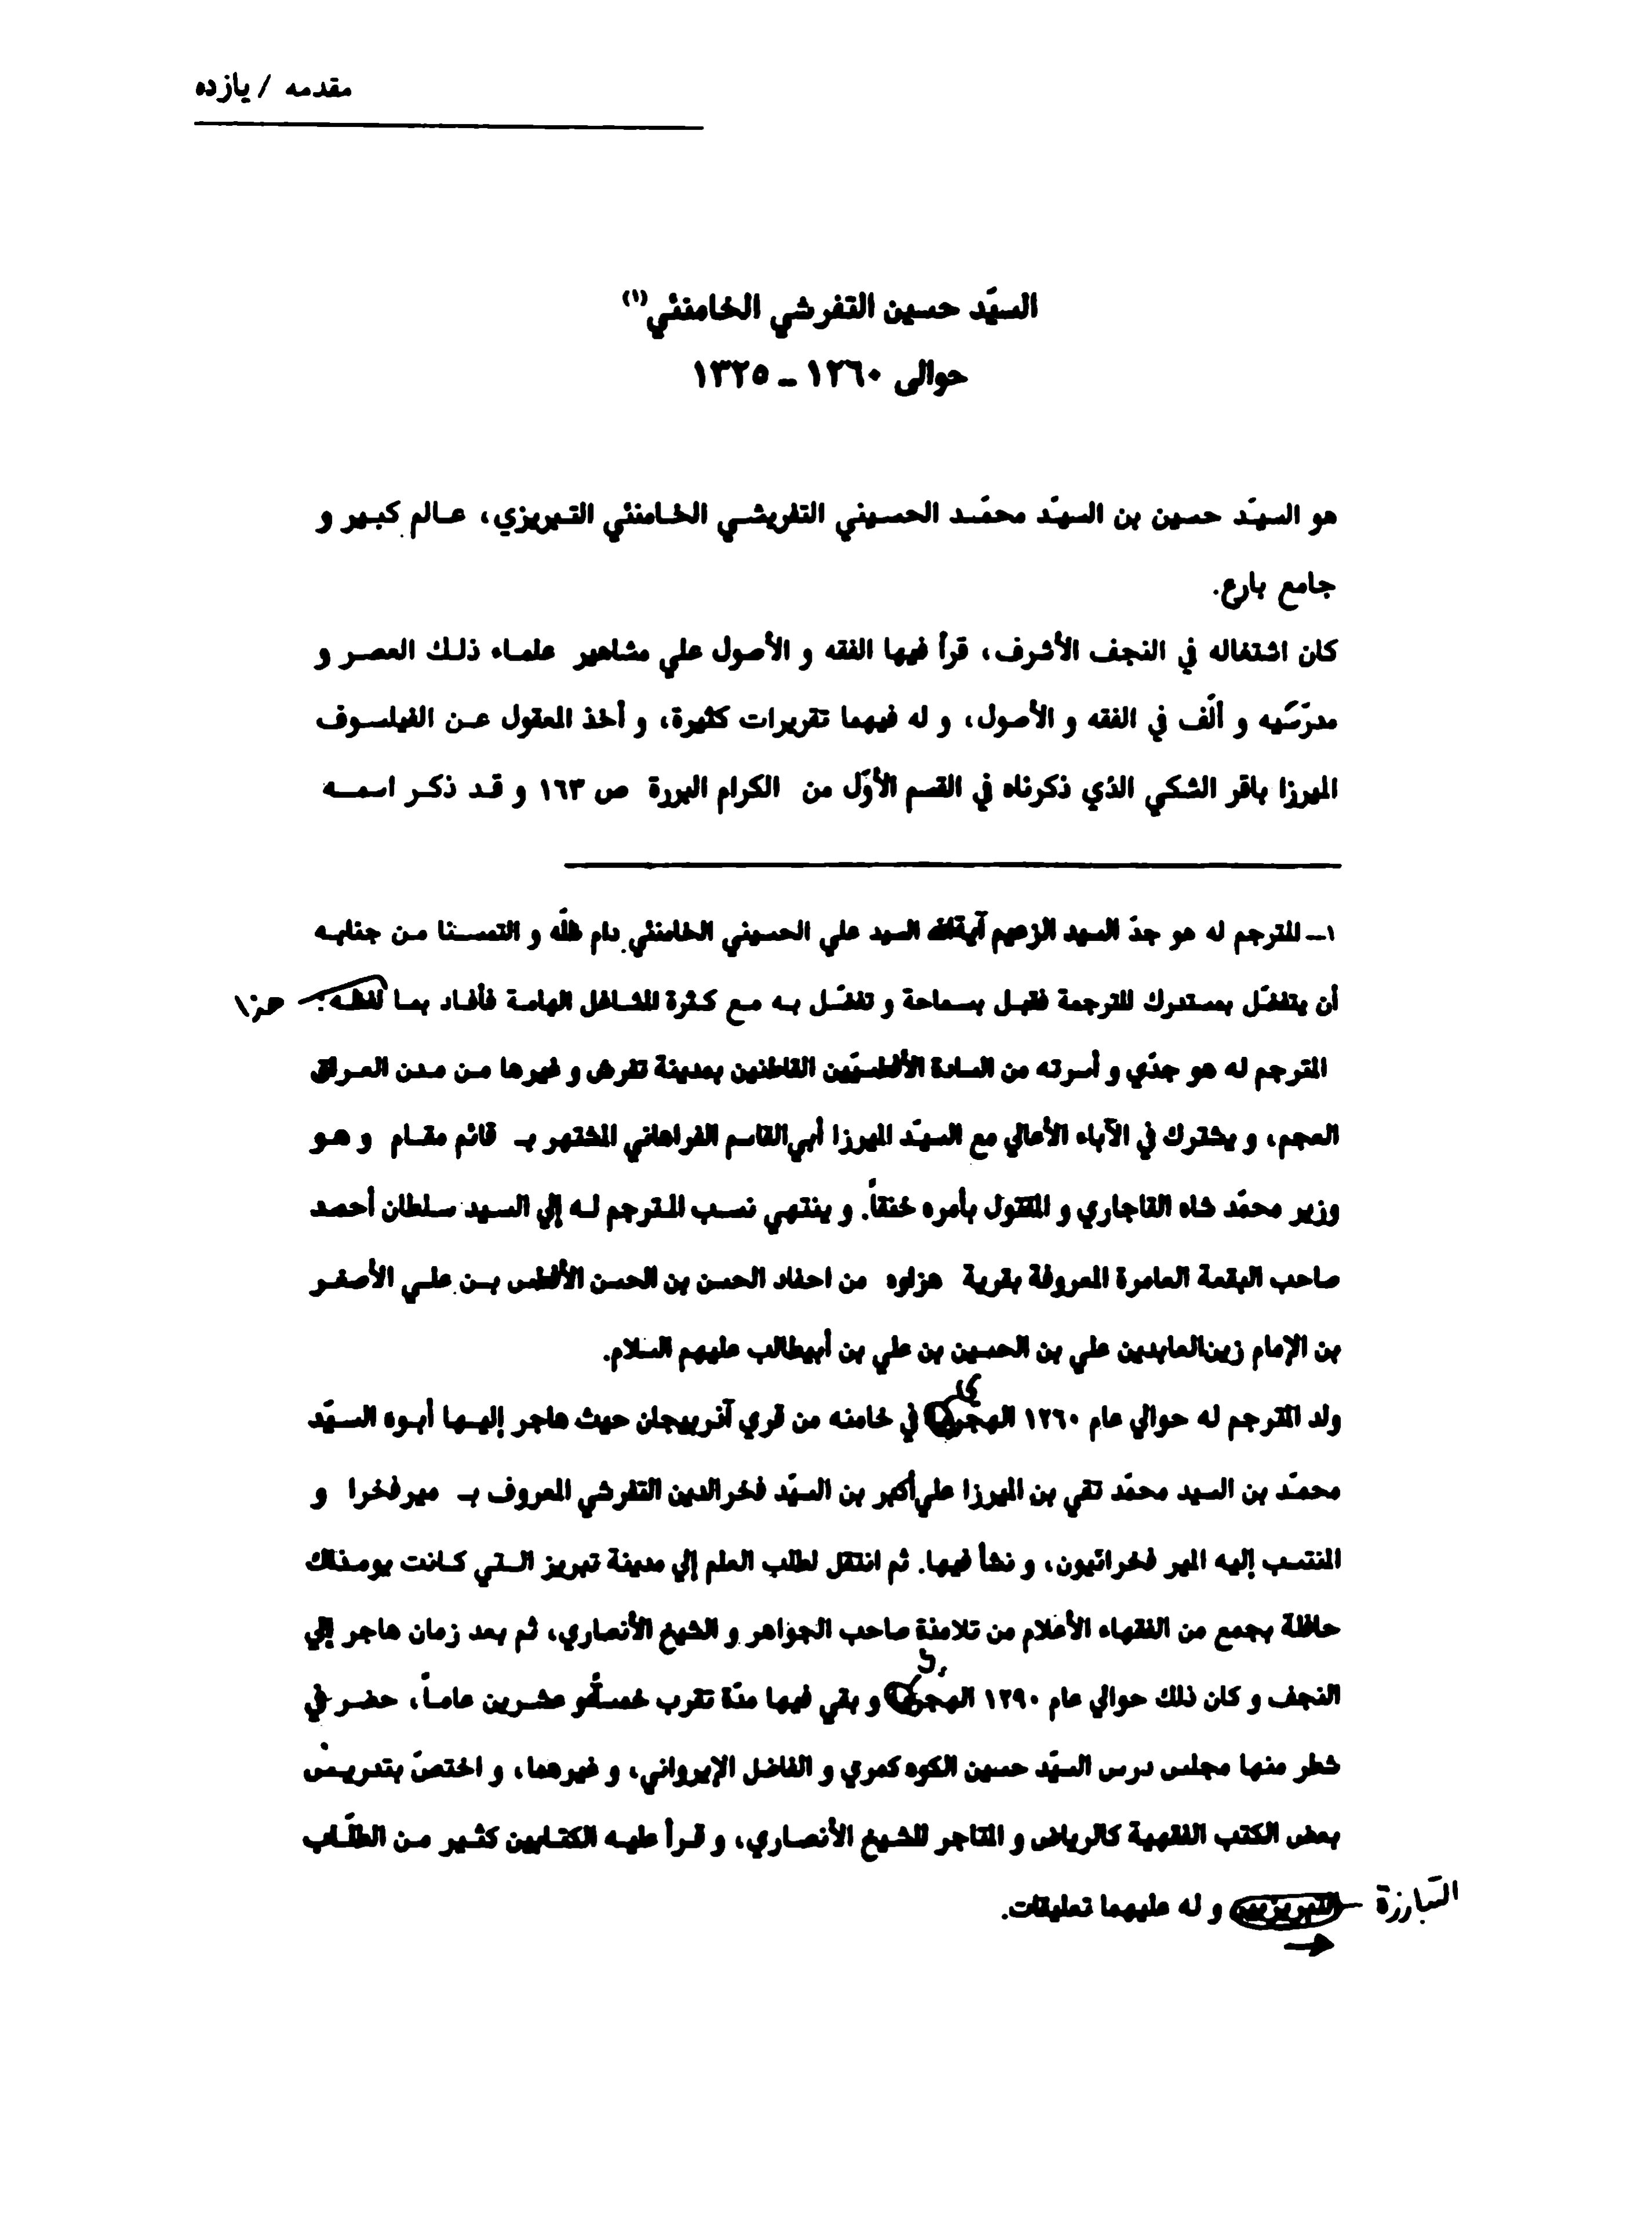 مقدمه / یازده
السیّد حسین التفرشي الخامنئي(١)
حوالی ١٢٦٠ ــ ١٣٢٥
هو السیّد حسین بن السیّد محمّد الحسیني التفریشي الخامنئي التبریزي، عالم کبیر و
جامع بارع.
کان اشتغاله في النجف الأشرف، قرأ فیها الفقه و الأصول علي مشاهیر علماء ذلك العصر و
مدرّسیه و ألّف في الفقه و الأصول، و له فیهما تقریرات کثیرة، و أخذ المعقول عن الفیلسوف
المیرزا باقر الشکي الذي ذکرناه في القسم الأوّل من الکرام البررة ص ١٦٣ و قد ذکر اسمه
١ــ المترجم له هو جدّ السید الزعیم آیةالله السید علي الحسیني الخامنئي دام ظلّه و التمسنا من جنابه
أن یتفضّل بمستدرك للترجمة فقبل بسماحة و تفضّل به مع کثرة المشاغل الهامة فأفاد بما لفظه:
المترجم له هو جدّي و أسرته من السادة الأفطسیّین القاطنین بمدینة تفرش و غیرها من مدن العراق
العجم، و یشترك في الآباء الأعالي مع السیّد المیرزا أبي‌القاسم الفراهاني المشتهر بـ قائم مقام و هو
وزیر محمّد شاه القاجاري و المقتول بأمره خنقاً. و ینتهي نسب المترجم له إلي السید سلطان أحمد
صاحب البقعة العامرة المعروفة بقریة هزاوه من احفاد الحسن بن الحسن الأفطس بن علي الأصغر
بن الإمام زین‌العابدین علي بن الحسین بن علي بن أبیطالب علیهم السلام.
ولد المترجم له حوالي عام ١٢٦٠ في خامنه من قري آذربیجان حیث هاجر إلیها أبوه السیّد
محمّد بن السید محمّد تقي بن المیرزا علي‌أکبر بن السیّد فخرالدین التفرشي المعروف بـ میرفخرا و
المنتسب إلیه المیر فخرائیون، و نشأ فیها. ثم انتقل لطلب العلم إلي مدینة تبریز التي کانت یومذاك
حافلة بجمع من الفقهاء الأعلام من تلامذة صاحب الجواهر و الشیخ الأنصاري، ثم بعد زمان هاجر إلي
النجف و کان ذلك حوالي عام ١٢٩٠ و بقي فیها مدّة تقرب خمسةً و عشرین عاماً، حضر في
شطر منها مجلس درس السیّد حسین الکوه کمري و الفاضل الإیرواني، و غیرهما، و اختصّ بتدریس
بعض الکتب الفقهیة کالریاض و المتاجر للشیخ الأنصاري، و قرأ علیه الکتابین کثیر من الطلّاب
و له علیهما تعلیقات.